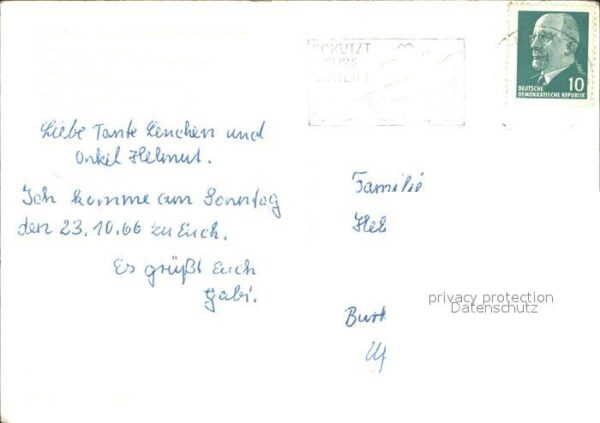 Liebe Tante Lenchen und
Onkel Helmut.
Ich komme am Sonntag
den 23.10.66 zu Euch.
Es grüßt Euch
Gabi.
SCHÜTZT
EURE
10
DEUTSCHE
DEMOKRATISCHE REPUBLIK
Familie
Hel
privacy protection
Datenschutz